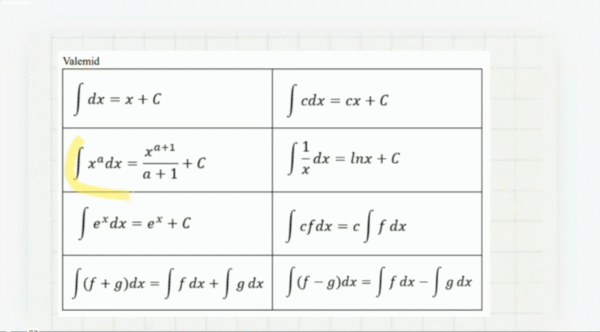 Valemid
∫ dx = x + C
∫ cdx = cx + C
∫ xᵃdx = xᵃ⁺¹/(a + 1) + C
∫ 1/x dx = lnx + C
∫ eˣdx = eˣ + C
∫ cfdx = c ∫ f dx
∫(f + g)dx = ∫ f dx + ∫ g dx
∫(f − g)dx = ∫ f dx − ∫ g dx